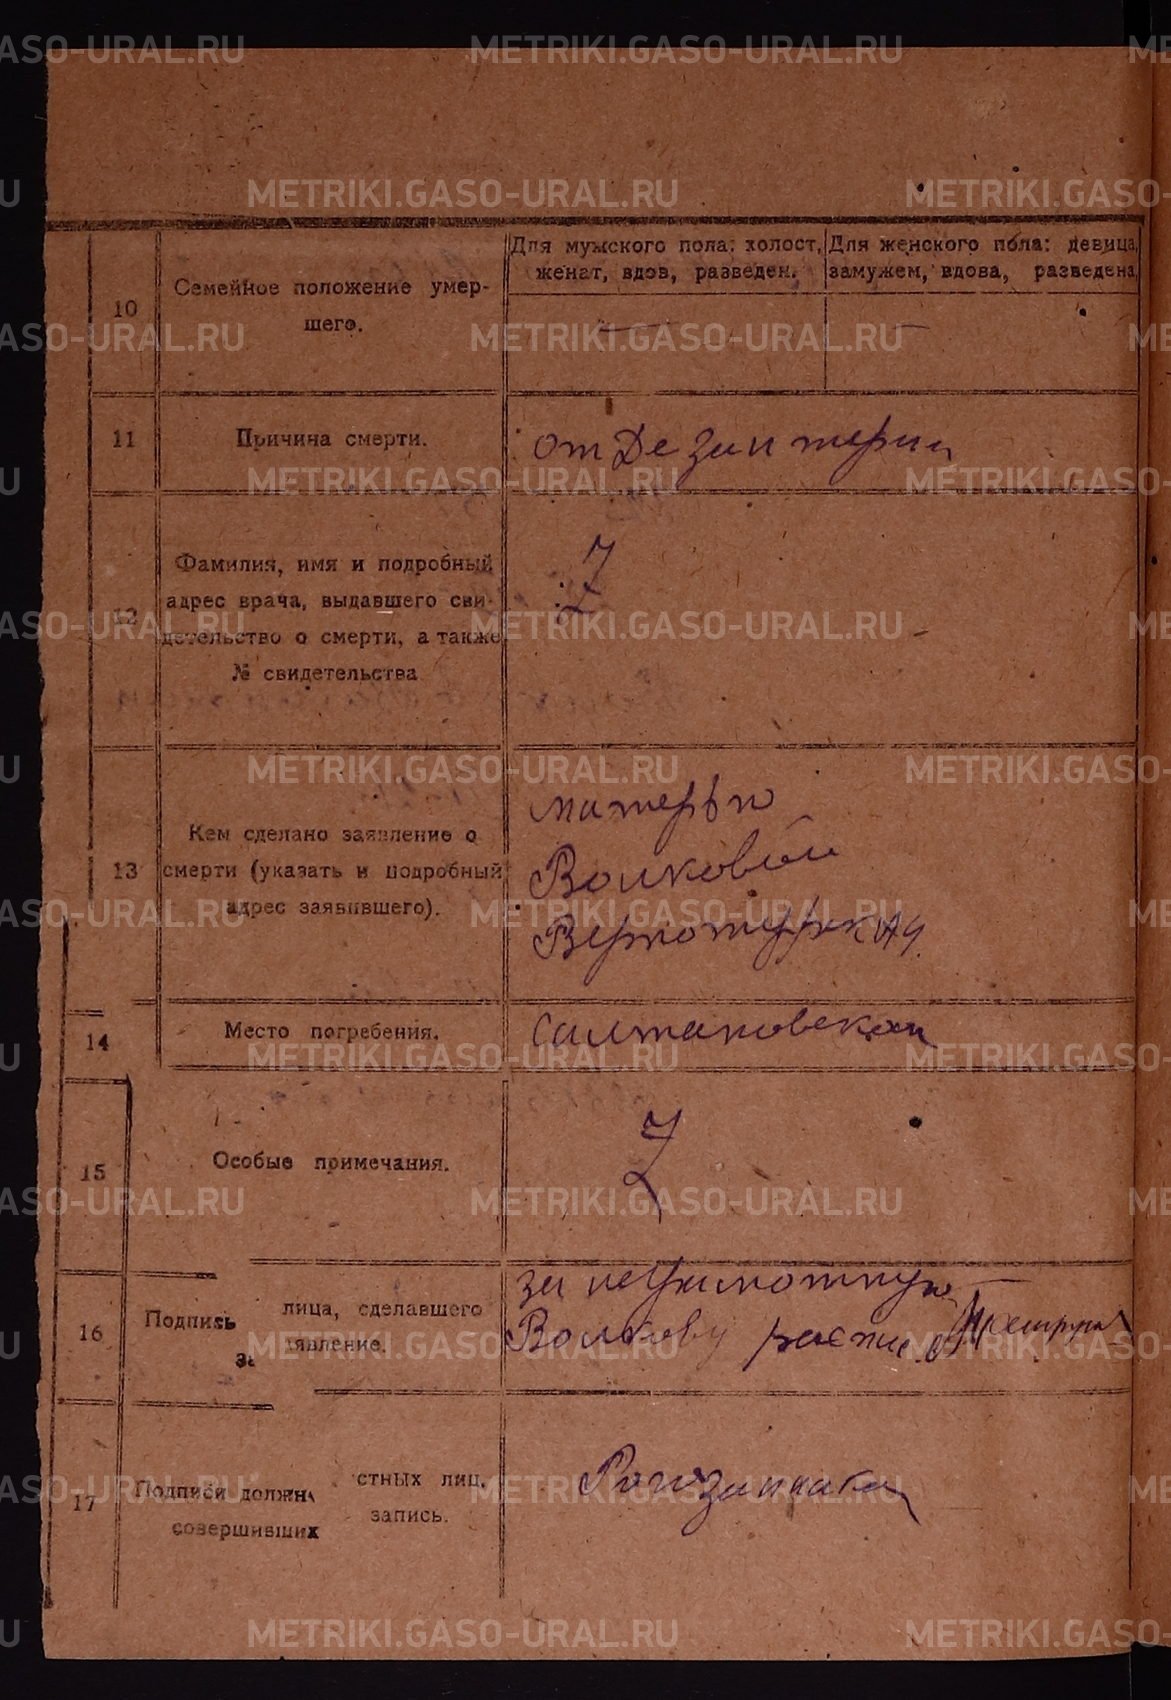 METRIKI.GASO-URAL.RU
Для мужского пола: холост,
женат, вдов, разведен.
Для женского пола: девица,
замужем, вдова, разведена
10
Семейное положение умер-
шего.
—
—
11
Причина смерти.
от Дезинтерии
12
Фамилия, имя и подробный
адрес врача, выдавшего сви-
детельство о смерти, а также
№ свидетельства
Z
13
Кем сделано заявление о
смерти (указать и подробный
адрес заявившего).
матерью
Волковой
14
Место погребения.
Салтановской
15
Особые примечания.
Z
16
Подпись лица, сделавшего
заявление.
за неграмотную
Волкову распис.
17
Подписи должностных лиц,
совершивших запись.